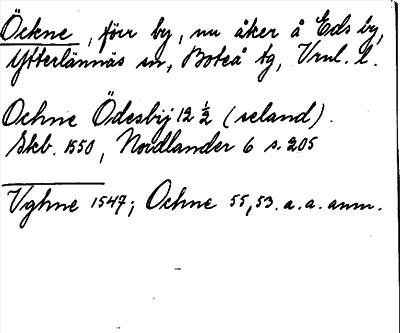 Öckne, förr by, nu åker å Eds by,
Ytterlännäs sn, Boteå tg, Vrnl. l.
Ochne Ödesbij 12 ½ (seland).
Skb. 1550, Nordlander 6 s. 205
Vghne 1547; Ochne 55, 53. a. a. anm.